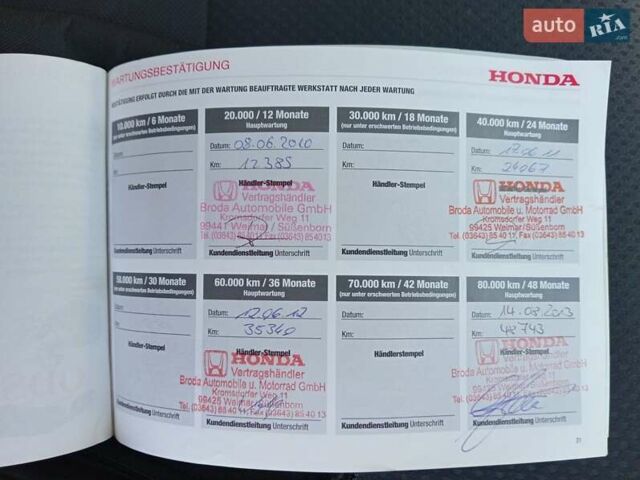 auto RIA.com
WARTUNGSBESTÄTIGUNG
HONDA
ERFOLGT DURCH DIE MIT DER WARTUNG BEAUFTRAGTE WERKSTATT NACH JEDER WARTUNG
10.000 km / 6 Monate
(nur unter erschwerten Betriebsbedingungen)
Datum:
Km:
Händler-Stempel
Kundendienstleitung Unterschrift
20.000 / 12 Monate
Hauptwartung
Datum: 08.06.2010
Km: 12385
Händler-Stempel
HONDA
Vertragshändler
Broda Automobile GmbH
Kromsdorfer Weg 11
99441 Weimar / Süßenborn
Tel. (03643) 85 40 11, Fax (03643) 85 40 13
Kundendienstleitung Unterschrift
30.000 km / 18 Monate
(nur unter erschwerten Betriebsbedingungen)
Datum:
Km:
Händler-Stempel
Kundendienstleitung Unterschrift
40.000 km / 24 Monate
Hauptwartung
Datum: 17.06.11
Km: 24067
Händler-Stempel
HONDA
Vertragshändler
Broda Automobile u. Motorrad GmbH
Kromsdorfer Weg 11
99425 Weimar / Süßenborn
Tel. (03643) 85 40 11, Fax (03643) 85 40 13
Kundendienstleitung Unterschrift
50.000 km / 30 Monate
(nur unter erschwerten Betriebsbedingungen)
Datum:
Km:
Händler-Stempel
Kundendienstleitung Unterschrift
60.000 km / 36 Monate
Hauptwartung
Datum: 12.06.12
Km: 35340
Händler-Stempel
HONDA
Vertragshändler
Broda Automobile u. Motorrad GmbH
Kromsdorfer Weg 11
99425 Weimar / Süßenborn
Tel. (03643) 85 40 11, Fax (03643) 85 40 13
Kundendienstleitung Unterschrift
70.000 km / 42 Monate
(nur unter erschwerten Betriebsbedingungen)
Datum:
Km:
Händlerstempel
Kundendienstleitung Unterschrift
80.000 km / 48 Monate
Hauptwartung
Datum: 14.08.2013
Km: 48743
Händler-Stempel
HONDA
Vertragshändler
Broda Automobile u. Motorrad GmbH
Kromsdorfer Weg 11
99425 Weimar / Süßenborn
Tel. (03643) 85 40 11, Fax (03643) 85 40 13
Kundendienstleitung Unterschrift
31